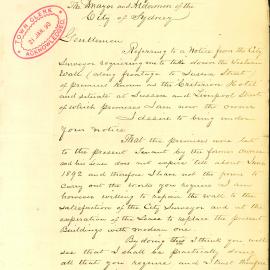 The Mayor and Aldermen of the
City of Sydney
TOWN CLERK
21 JAN. 90
ACKNOWLEDGED
Gentlemen
Referring to a Notice from the City
Surveyor requiring me to take down the Western
Wall (along frontage to Sussex Street)
of premises Known as the Hotel
and situate at Sussex and Liverpool Streets
of which premises I am now the owner
I desire to bring under
your notice
That the premises were let
to the present Tenant by the former owner
and his Lease does not expire till about June
1892 and therefore I have not the power to
carry out the works you require I am
however willing to repair the wall to the
satisfaction of the City Surveyor and at the
expiration of the Lease to replace the present
Buildings with modern one
By doing this I think you will
see that I shall be practically doing
all that you require and I trust therefore